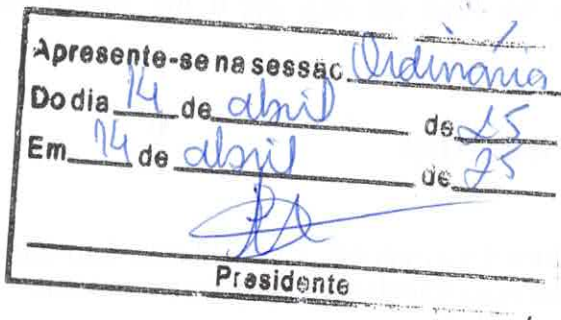 Apresente-se na sessão Ordinária
Do dia 14 de abril de 25
Em 14 de abril de 25
Presidente